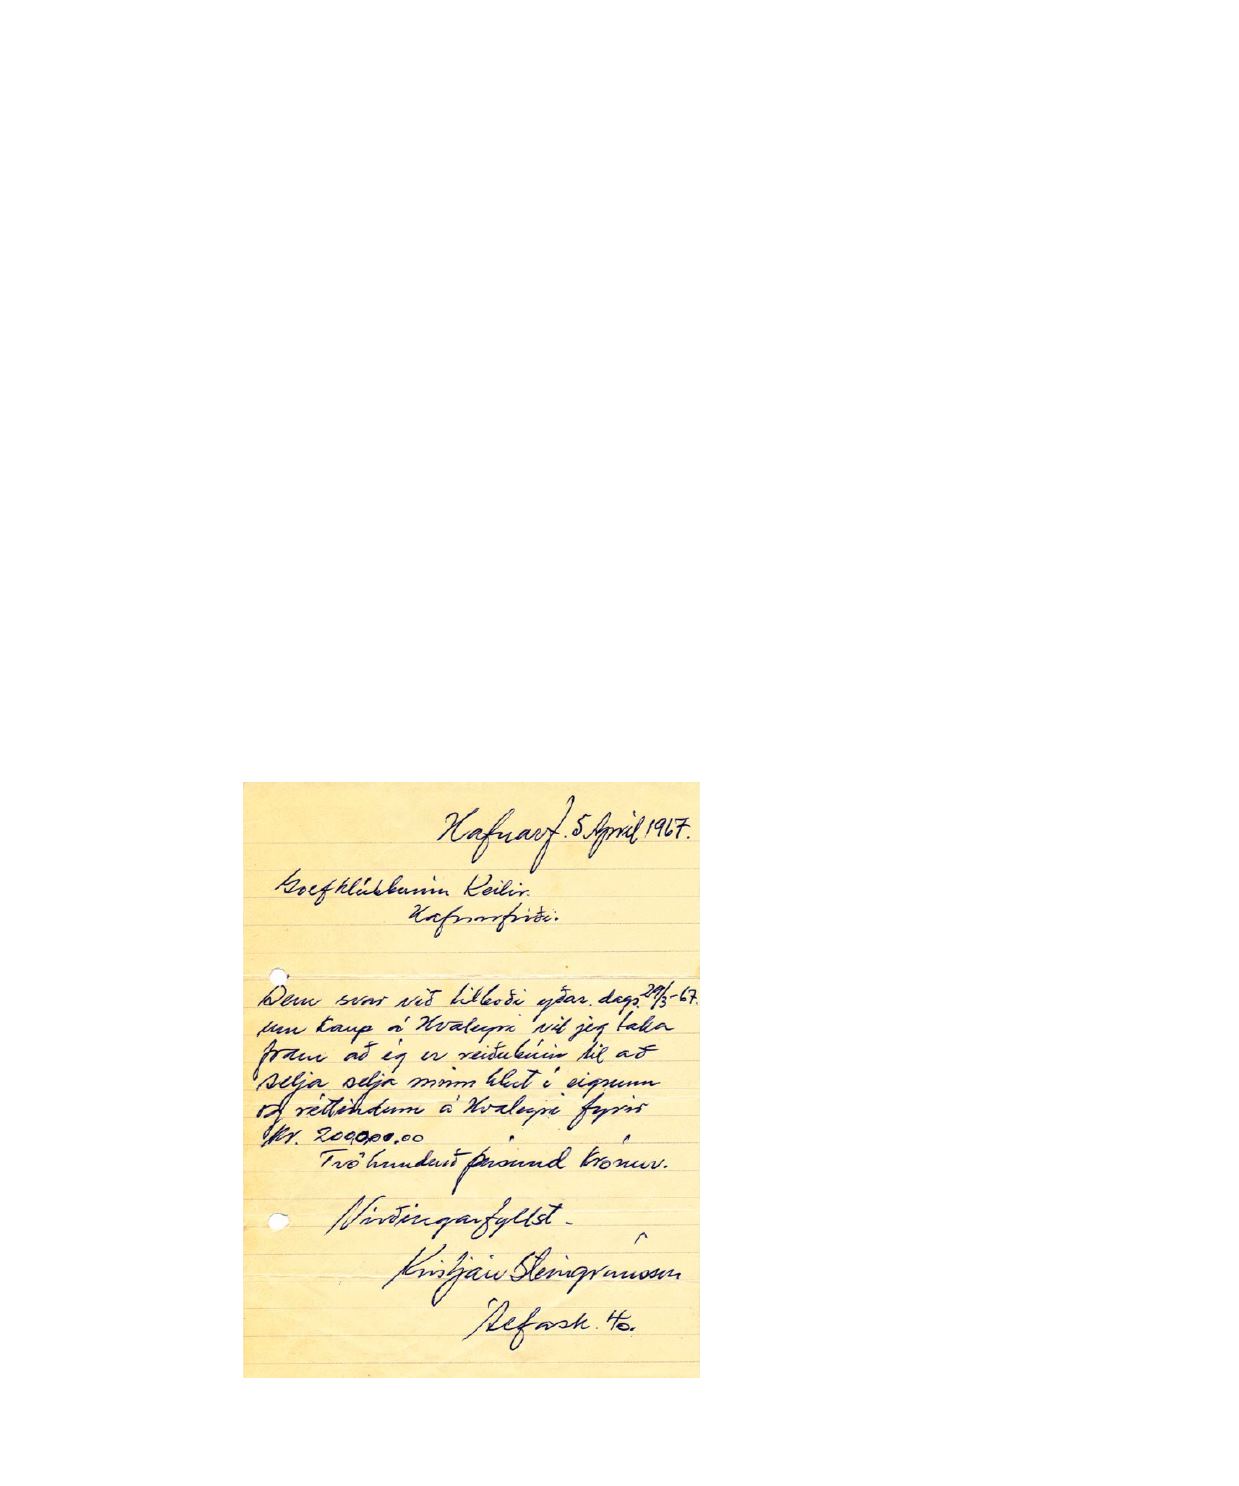 Hafnarf. 5 Apríl 1967.
Golfklúbburinn Keilir.
Hafnarfirði.
Sem svar við tilboði yðar. dags. 29/3-67.
um kaup á Hvaleyri vil jeg taka
fram að ég er reiðubúin til að
selja selja minn hlut í eignum
og réttindum á Hvaleyri fyrir
Kr. 200,000.00
Tvö hundruð þúsund krónur.
Virðingarfyllst -
Kristján Steingrímsson
Álfask. 40.